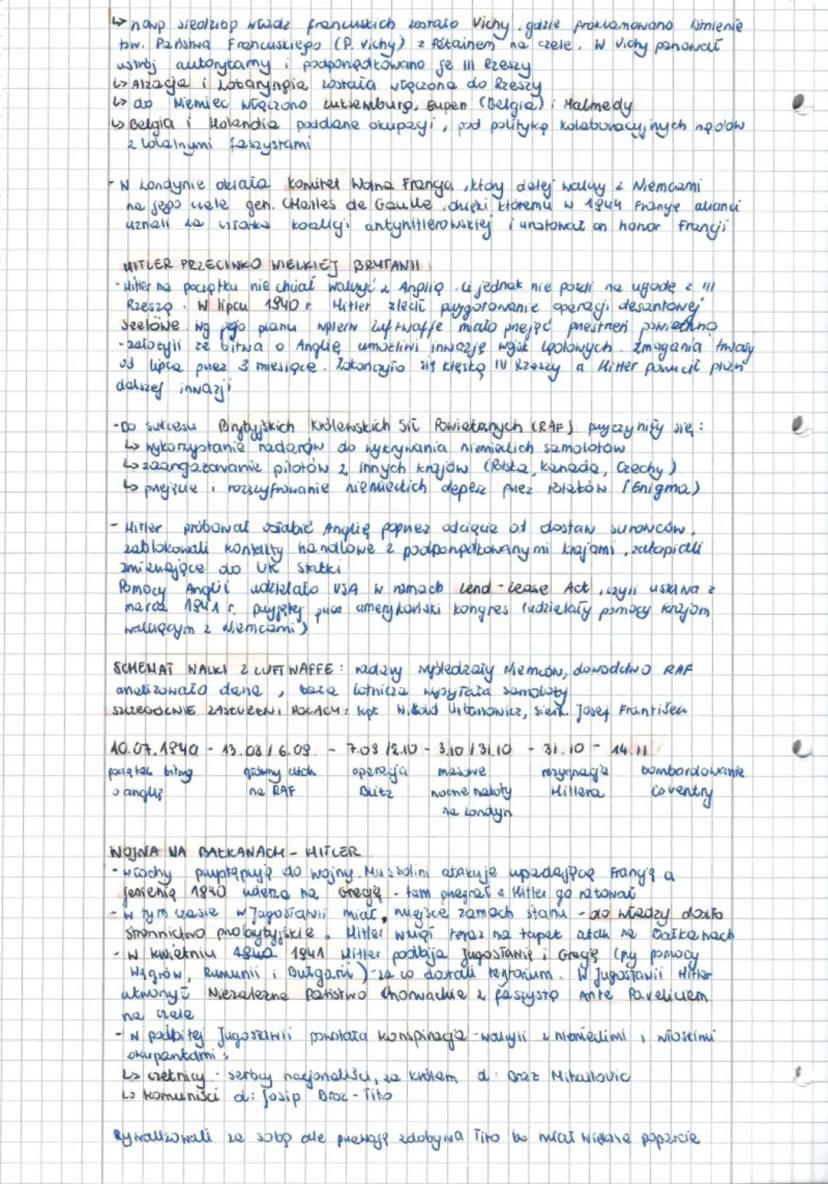 ↳ nową siedzibą władz francuskich zostało Vichy, gdzie proklamowano istnienie
tzw. Państwa Francuskiego (P. Vichy) z Pétainem na czele. W Vichy panował
ustrój autorytarny i podporządkowano je III Rzeszy
↳ Alzacja i Lotaryngia została włączona do Rzeszy
↳ do Niemiec włączono Luksemburg, Eupen (Belgia) i Malmedy
↳ Belgia i Holandia poddane okupacji, pod polityką kolaboracyjnych rządów
z lokalnymi faszystami
- W Londynie działa Komitet Wolna Francja, który dalej walczy z Niemcami
na jego czele gen. CHarles de Gaulle, dzięki któremu w 1944 Francję alianci
uznali za członka koalicji antyhitlerowskiej i uratował on honor Francji
HITLER PRZECIWKO WIELKIEJ BRYTANII
- Hitler na początku nie chciał walczyć z Anglią. Ci jednak nie poszli na ugodę z III
Rzeszą. W lipcu 1940 r. Hitler zlecił przygotowanie operacji desantowej
Seelöwe wg jego planu wpierw Luftwaffe miało przejąć przestrzeń powietrzną
- założyli że bitwa o Anglię umożliwi inwazję wojsk lądowych. Zmagania trwały
od lipca przez 3 miesiące. Zakończyło się klęską Rzeszy a Hitler porzucił plan
dalszej inwazji
- Do sukcesu Brytyjskich Królewskich Sił Powietrznych (RAF) przyczyniły się:
↳ wykorzystanie radarów do wykrywania niemieckich samolotów
↳ zaangażowanie pilotów z innych krajów (Polska, Kanada, Czechy)
↳ przejęcie i rozszyfrowanie niemieckich depesz przez Polaków (Enigma)
- Hitler próbował osłabić Anglię poprzez odcięcie od dostaw surowców,
zablokowali kontakty handlowe z podporządkowanymi krajami, zatapiali
zmierzające do UK statki
Pomocy Anglii udzielało USA w ramach Lend-Lease Act, czyli ustawa z
marca 1941 r. przyjętej przez amerykański kongres (udzielały pomocy krajom
walczącym z Niemcami)
SCHEMAT WALKI Z LUFTWAFFE: radary wyśledzały Niemców, dowództwo RAF
analizowało dane, baza lotnicza wysyłała samoloty
SZCZEGÓLNIE ZASŁUŻENI POLACY: kpt. Witold Urbanowicz, sierż. Josef František
10.07.1940 - 13.08/6.09 - 7.09/2.10 - 3.10/31.10 - 31.10 - 14.11
początek bitwy główny atak operacja masowe rezygnacja bombardowanie
o anglię na RAF Blitz nocne naloty Hitlera Coventry
na Londyn
WOJNA NA BAŁKANACH - HITLER
- Włochy przystępują do wojny. Mussolini atakuje upadającą Francję a
jesienią 1940 uderza na Grecję - tam przegrał a Hitler go ratował
- w tym czasie w Jugosławii miał miejsce zamach stanu - do władzy doszło
stronnictwo probrytyjskie. Hitler wziął teraz na tapet atak na Bałkanach
- W kwietniu 1940 1941 Hitler podbija Jugosławię i Grecję (przy pomocy
Węgrów, Rumunii i Bułgarii) - za co dostali terytorium. W Jugosławii Hitler
utworzył Niezależne Państwo Chorwackie z faszystą Ante Paveliciem
na czele
- W podbitej Jugosławii powstała konspiracja - walczyli z niemieckimi i włoskimi
okupantami:
↳ czetnicy - serbscy nacjonaliści, za królem d: Draž Mihailovic
↳ komuniści d: Josip Broz - Tito
Rywalizowali ze sobą ale przewagę zdobywa Tito bo miał większe poparcie